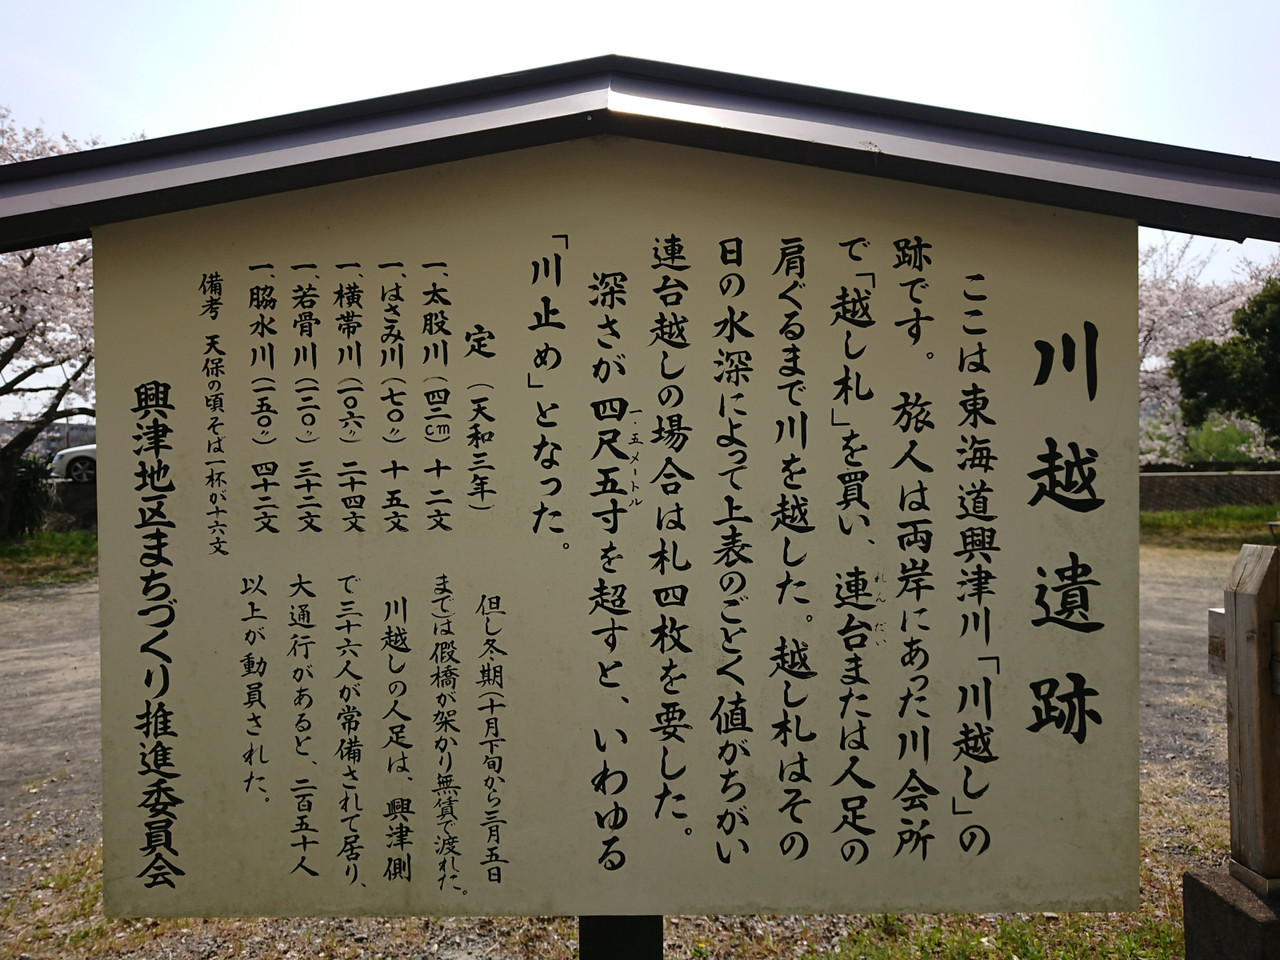 川越遺跡
ここは東海道興津川「川越し」の
跡です。旅人は両岸にあった川会所
で「越し札」を買い、連台または人足の
れんだい
肩ぐるまで川を越した。越し札はその
日の水深によって上表のごとく値がちがい
連台越しの場合は札四枚を要した。
深さが四尺五寸を超すと、いわゆる
一・五メートル
「川止め」となった。
定（天和三年）
一、太股川（四二cm）十二文
一、はさみ川（七〇〃）十五文
一、横帯川（一〇六〃）二十四文
一、若骨川（一二〇〃）三十二文
一、脇水川（一五〇〃）四十二文
備考 天保の頃そば一杯が十六文
但し冬期（十月下旬から三月五日
まで）は假橋が架かり無賃で渡れた。
川越しの人足は、興津側
で三十六人が常備されて居り、
大通行があると、二百五十人
以上が動員された。
興津地区まちづくり推進委員会